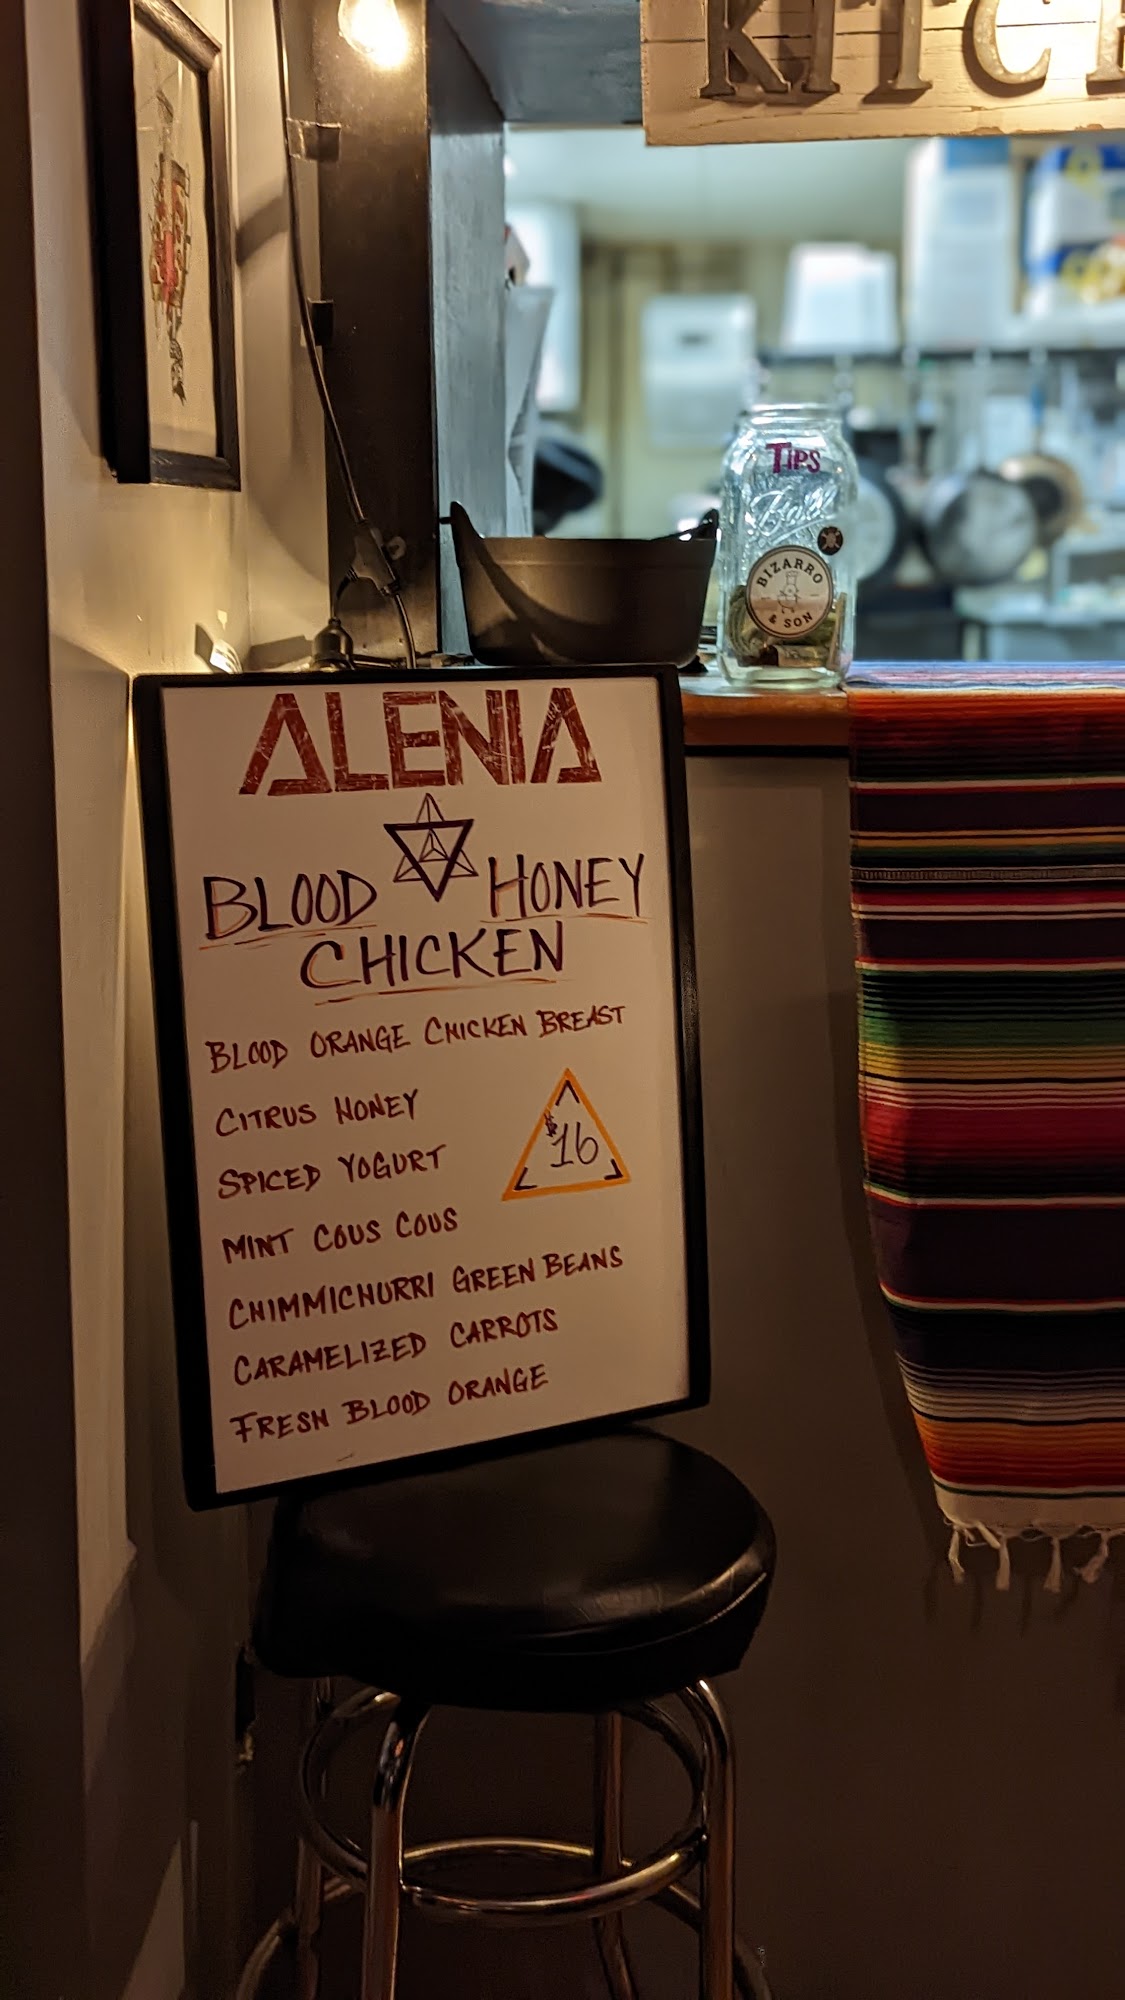 KITCH
TIPS
Ball
BIZARRO
& SON
ALENIA
BLOOD HONEY
CHICKEN
BLOOD ORANGE CHICKEN BREAST
CITRUS HONEY
$16
SPICED YOGURT
MINT COUS COUS
CHIMMICHURRI GREEN BEANS
CARAMELIZED CARROTS
FRESH BLOOD ORANGE